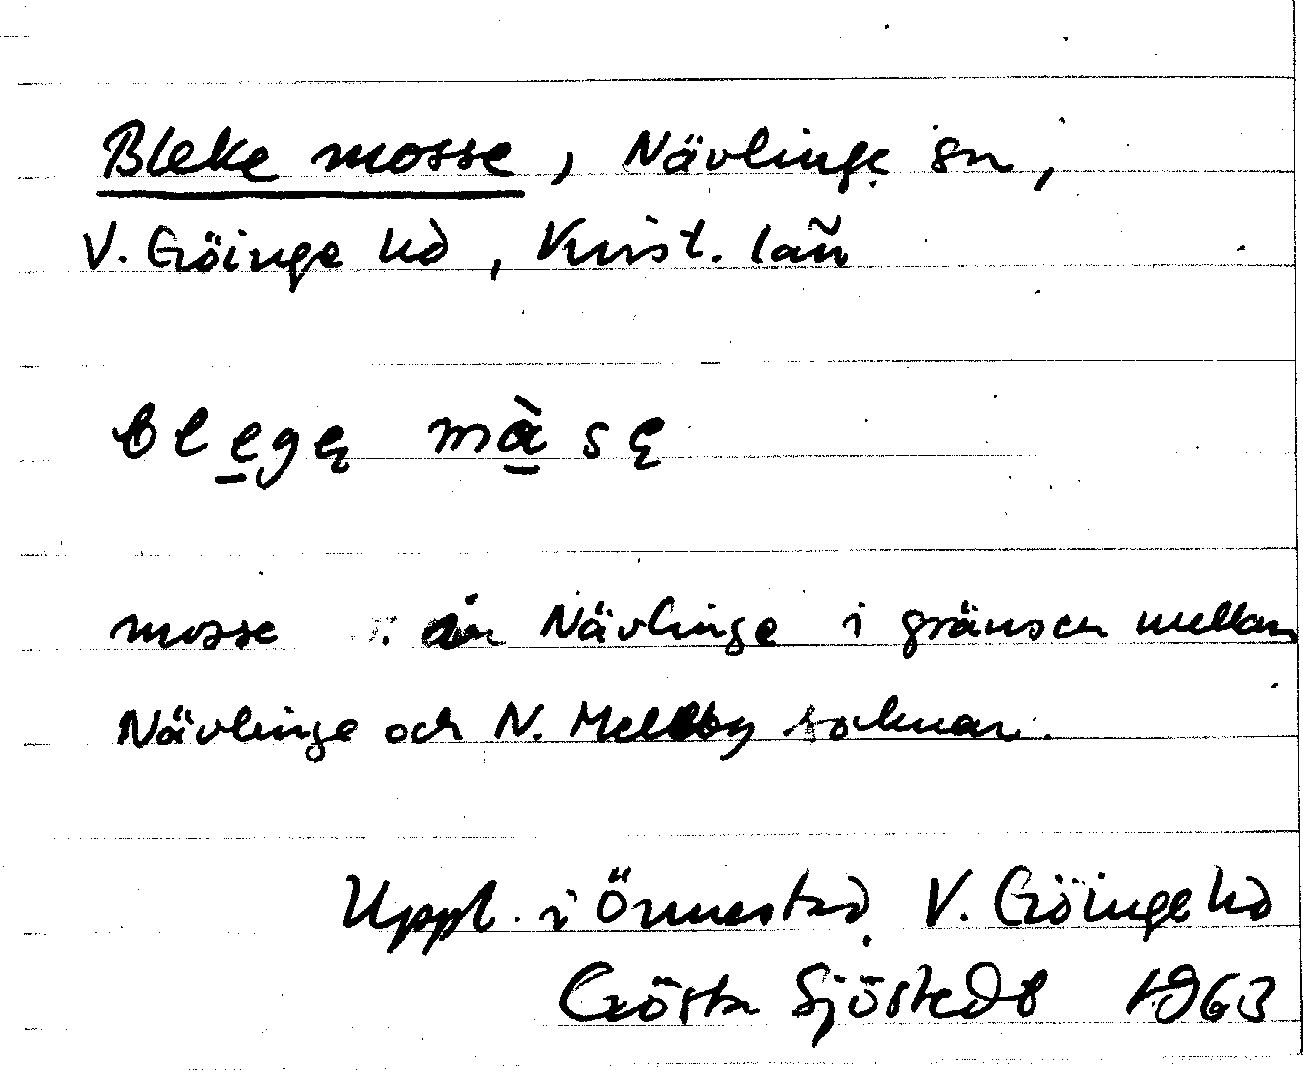 Bleke mosse, Nävlinge sn,
V. Göinge hd, Krist. län
bl e̲gę mà̲sę
mosse i Nävlinge i gränsen mellan
Nävlinge och N. Mellby socknar.
Uppt. i Önnestad, V. Göinge hd
Gösta Sjöstedt 1963